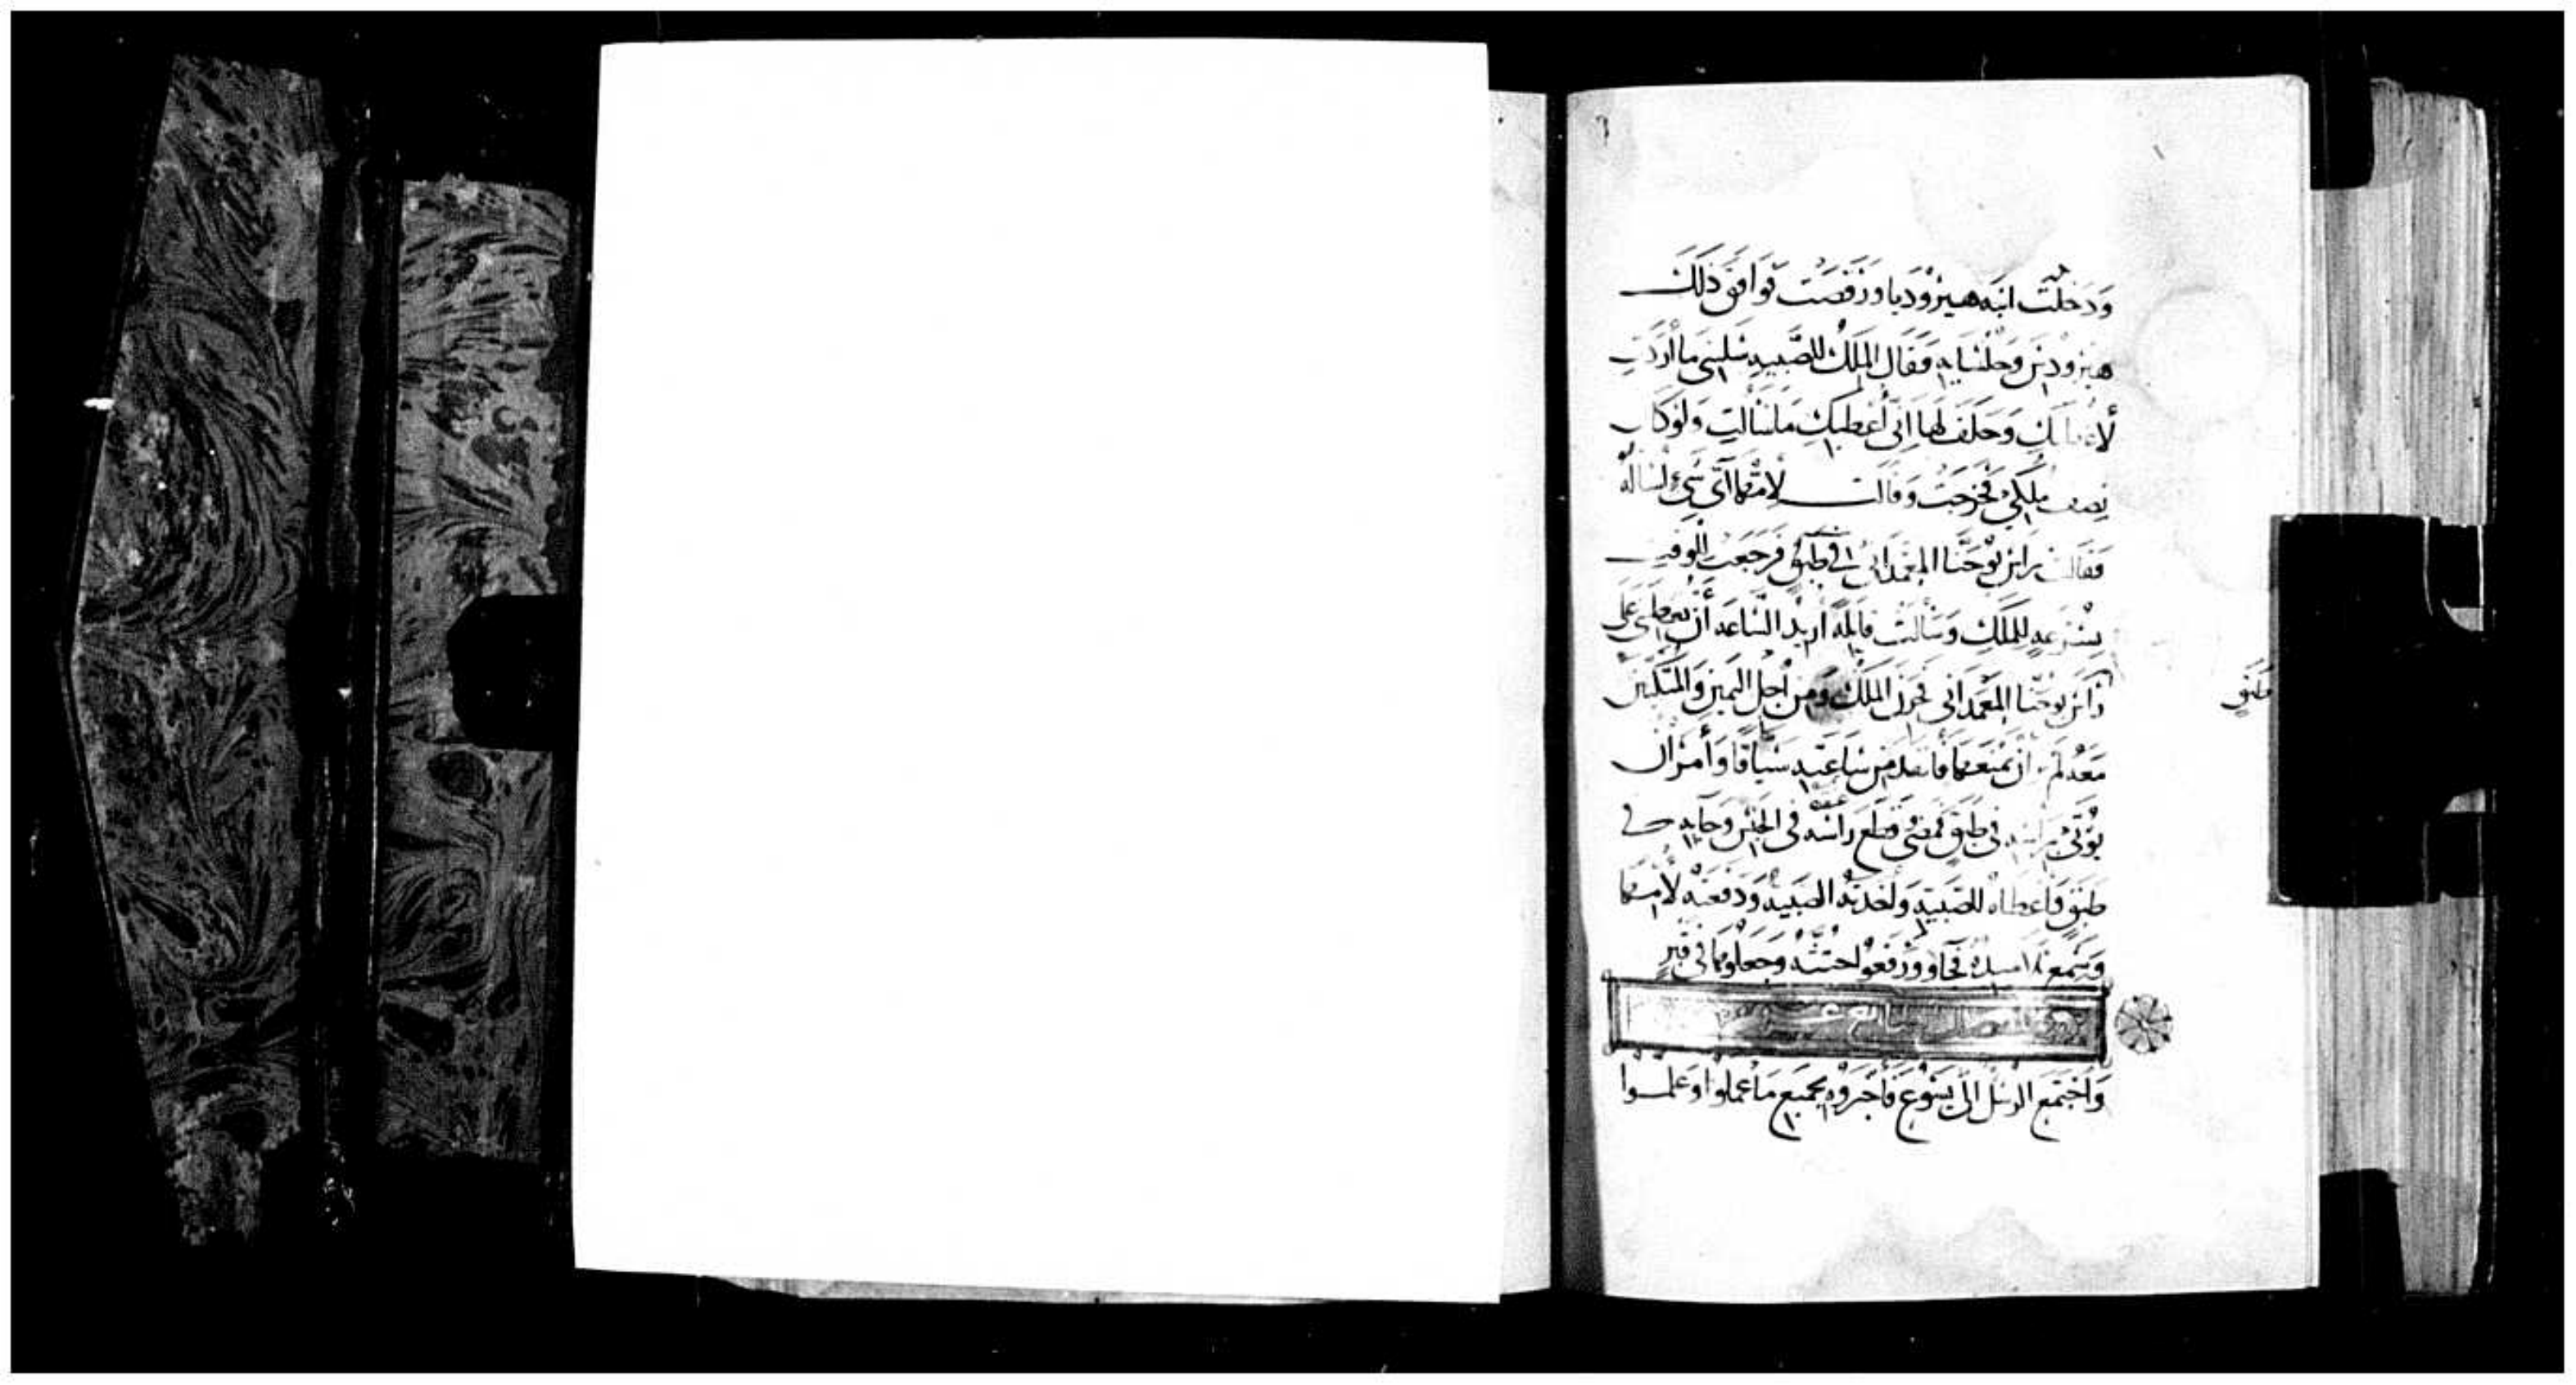 وَدَخَلَت ابنَة هيرُودِيا وَرَقَصَت فَوَافَق ذَلِكَ
هيرُودِس وَجُلَسَايه فَقَال المَلِك للصَّبيه سَليني مَا أرَدتِ
لأعطيكِ وَحَلَف لهَا انّي أُعطيكِ مَا سَألتِ وَلَو كَان
نِصف مُلكي فخَرَجَت وَقَالت لأمّهَا أيّ شَيء أسَاله
فَقَالت رَاس يُوحَنّا المَعمَداني في طَبق فَرَجَعَت للوَقت
بسُرعه للمَلك وَسَألت قَايلَه اريد السّاعه أن تعطيني عَلى
رَاس يُوحَنّا المَعمَداني فحَزن المَلك وَمِن أجل اليَمين وَالمتّكين
مَعَهُ لَم ان يَمنعهَا فَانفذ مِن سَاعَتِه سَيّافًا وَأمَر ان
يُؤتى براسه في طَبق فمضى وَقَطَع رَاسَه في الحَبس وَجَا به في
طَبق فَأعطَاه للصَّبيه وَأخذته الصَّبيه وَدَفَعَته لأمّهَا
وَسَمع تلاميذه فجَاؤو وَرَفَعُوا جثته وَجَعَلوهَا في قَبر
وَاجتَمَع الرُسُل الى يَسُوع فَأخبَرُوه بجَميع مَا عَملوا وَعَلموا
طبق